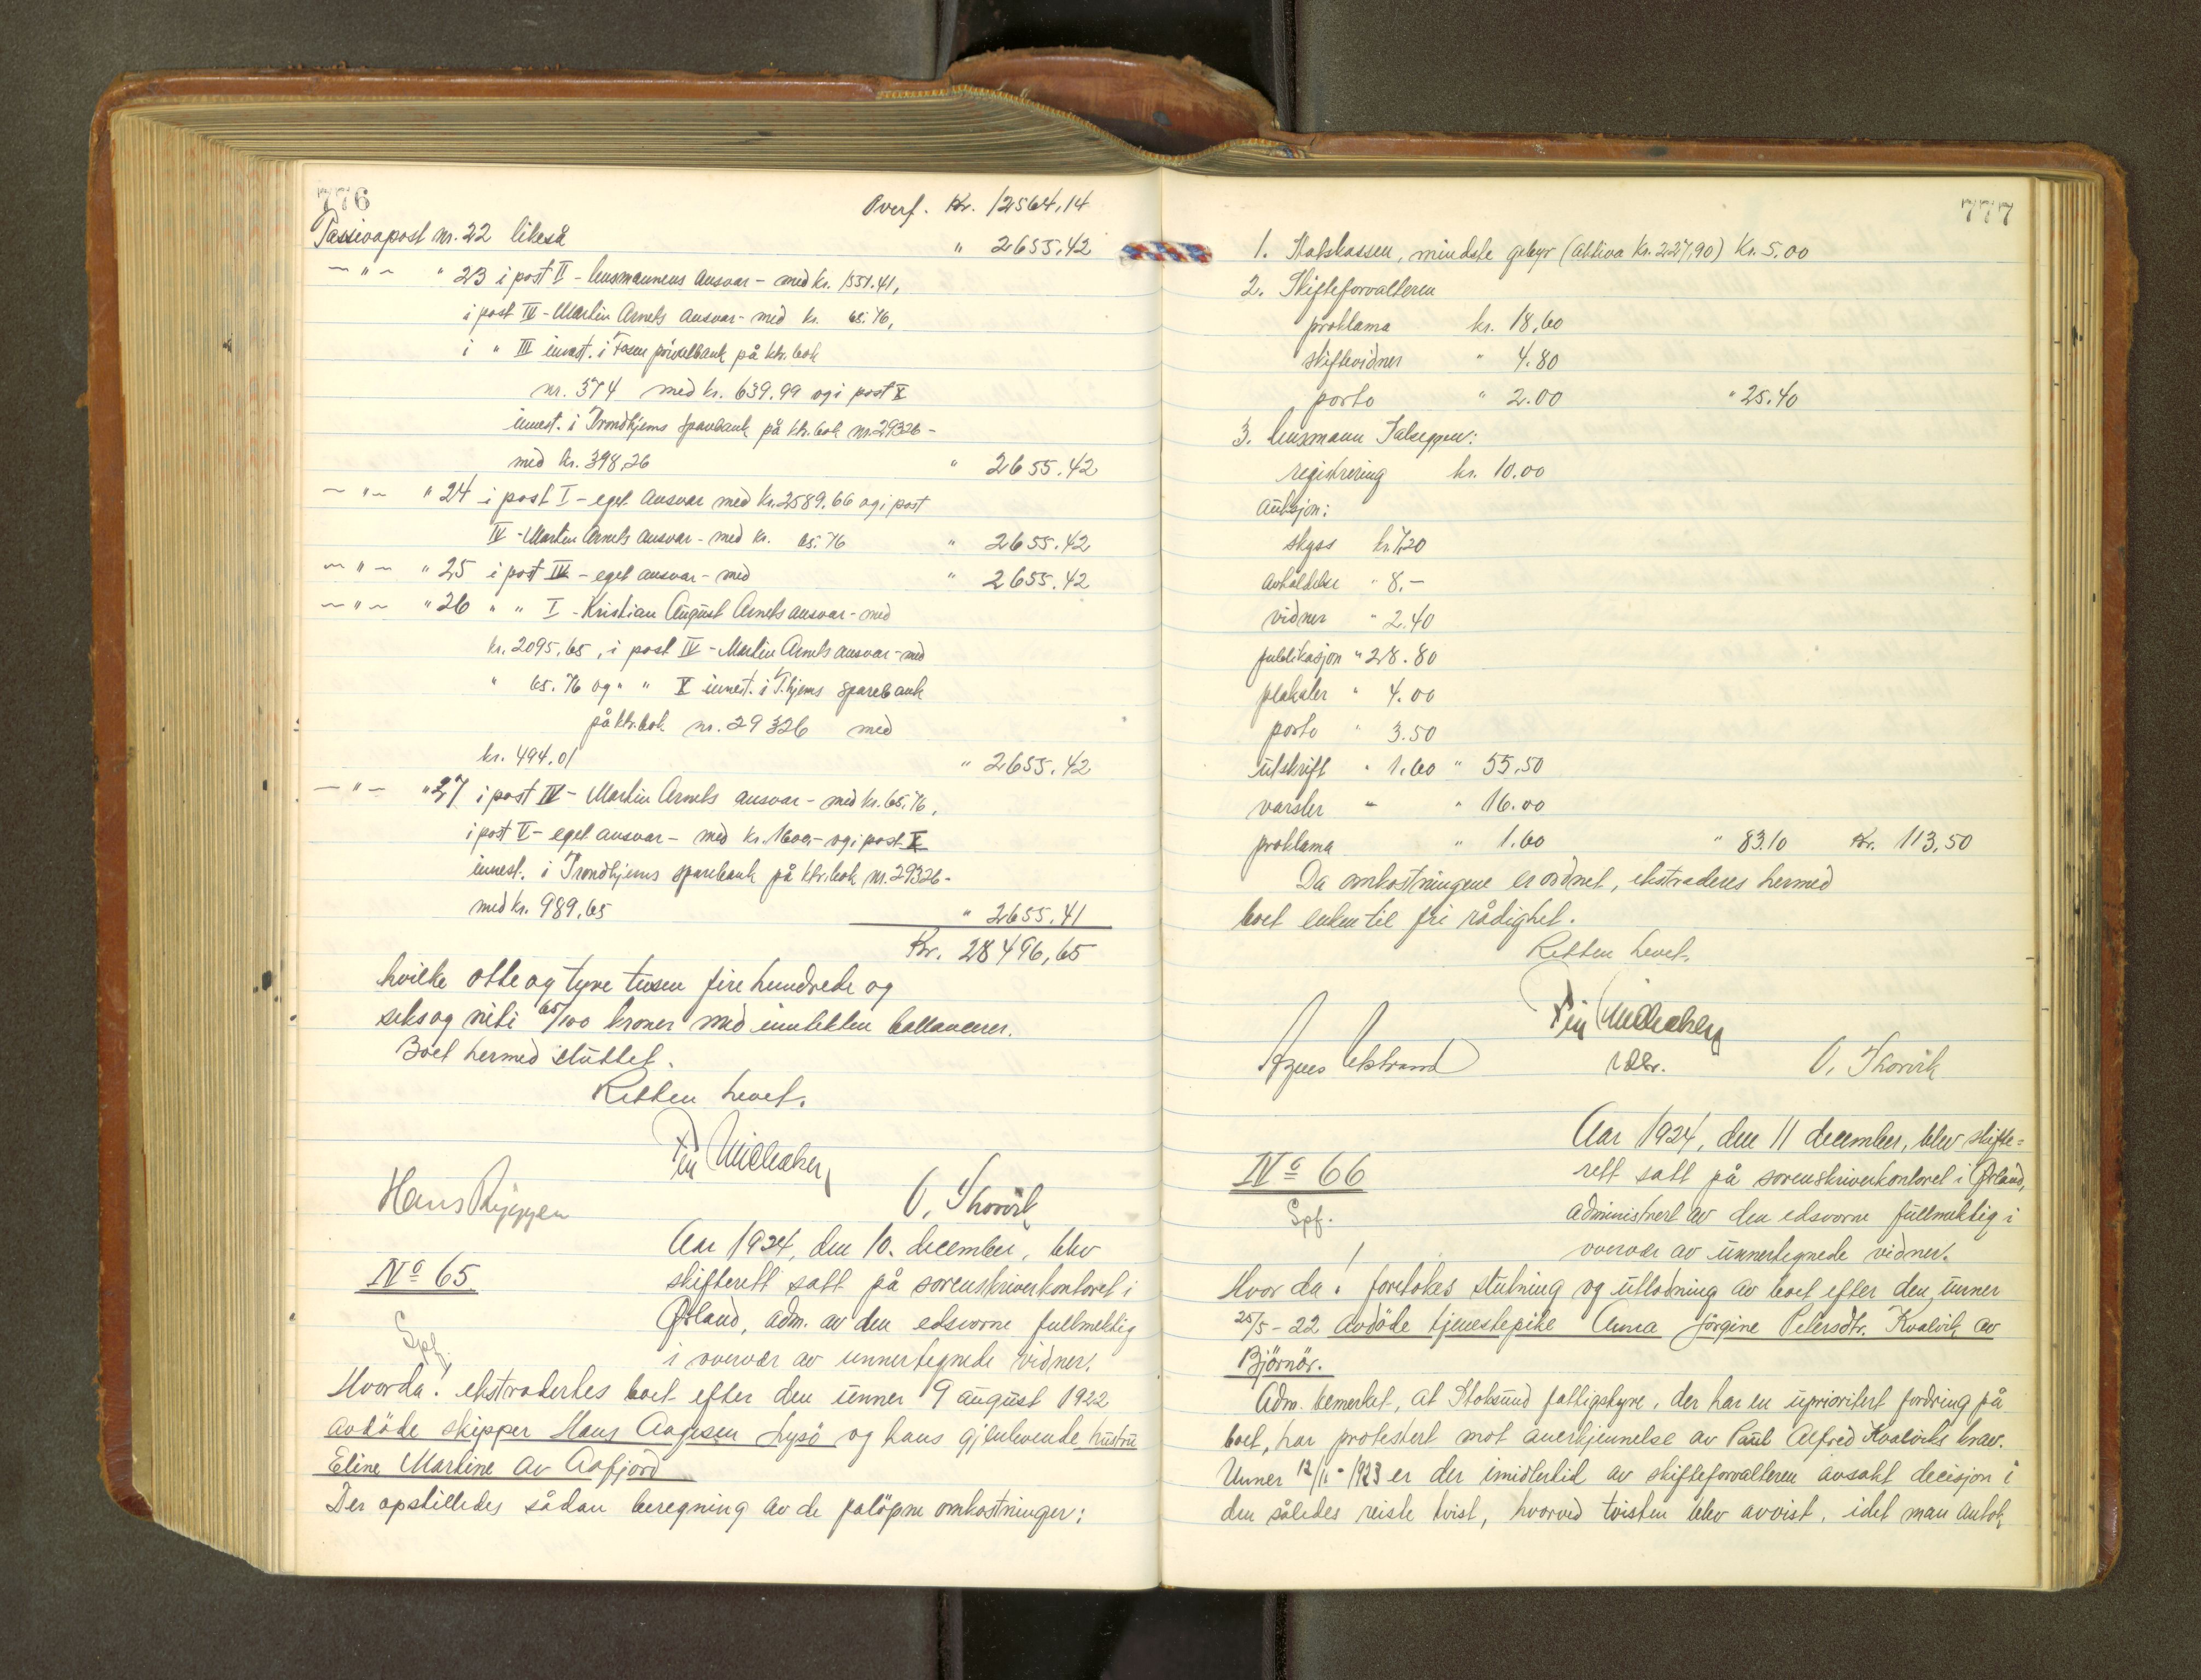 776
Overf. Kr. 12564,14
Passivapost nr. 22 likeså " 2655.42
— " — " 23 i post II - lensmannens ansvar - med kr. 1551.41,
i post IV - Martin Arnets ansvar - med kr. 65.76,
i " III innest. i Fosen privatbank på ktr. bok
nr. 374 med kr. 639.99 og i post X
innest. i Trondhjems sparebank på ktr. bok nr. 29326 -
med kr. 398,26 " 2655.42
— " — " 24 i post I - eget ansvar med kr. 2589.66 og i post
IV - Martin Arnets ansvar - med kr. 65.76 " 2655.42
— " — " 25 i post IV - eget ansvar - med " 2655.42
— " — " 26 " " I - Kristian August Arnets ansvar - med
kr. 2095.65, i post IV - Martin Arnets ansvar - med
" 65.76 og " " X innest. i T.hjems sparebank
på ktr. bok nr. 29326 med
kr. 494.01 " 2655.42
— " — " 27 i post IV - Martin Arnets ansvar - med kr. 65.76,
i post V - eget ansvar - med kr. 1600,- og i post X
innest. i Trondhjems sparebank på ktr. bok nr. 29326 -
med kr. 989,65 " 2655.41
Kr. 28496,65
hvilke otte og tyve tusen fire hundrede og
seks og nitti 65/100 kroner med inntekten ballanserer.
Boet hermed sluttet.
Retten hevet.
Hans Ryggen
O. Skorvik
Aar 1924, den 10. december, blev
No 65.
skifterett satt på sorenskriverkontoret i
Ørland, adm. av den edsvorne fullmektig
Spf.
i overvær av unnertegnede vidner.
Hvorda! ekstradertes boet efter den unner 9 august 1922
avdöde skipper Hans Aagesen Lysö og hans gjenlevende hustru
Eline Martine av Aafjord
Der opstilledes sådan beregning av de palöpne omkostninger:
777
1. Statskassen, mindste gebyr (Aktiva kr. 227,90) Kr. 5.00
2. Skifteforvalteren
proklama kr. 18,60
skiftevidner " 4.80
porto " 2.00 " 25.40
3. lensmann
registrering kr. 10.00
auksjon:
skyss kr. 7.20
avholdelse " 8.-
vidner " 2.40
publikasjon " 28.80
plakater " 4.00
porto " 3.50
utskrift " 1.60 " 55.50
varsler " " 16.00
proklama " 1.60 " 83.10 Kr. 113,50
Da omkostningene er ordnet, ekstraderes hermed
boet enken til fri rådighet.
Retten hevet.
Agnes Ukstrand
O. Skorvik
Aar 1924, den 11 december, blev skifte=
No 66
rett satt på sorenskriverkontoret i Ørland,
Spf.
administrert av den edsvorne fullmektig i
overvær av unnertegnede vidner.
Hvor da! foretokes slutning og utlodning av boet efter den unner
25/5 - 22 avdöde tjenestepike Anna Jörgine Petersdtr. Kvalvik av
Björnör.
Adm. bemerket, at Stoksund fattigstyre, der har en uprioritert fordring på
boet, har protestert mot anerkjennelse av Paul Alfred Kvalviks krav.
Unner 12/11 - 1923 er der imidlertid av skifteforvalteren avsakt decisjon i
den således reiste tvist, hvorved tvisten blev avvist, idet man antok,